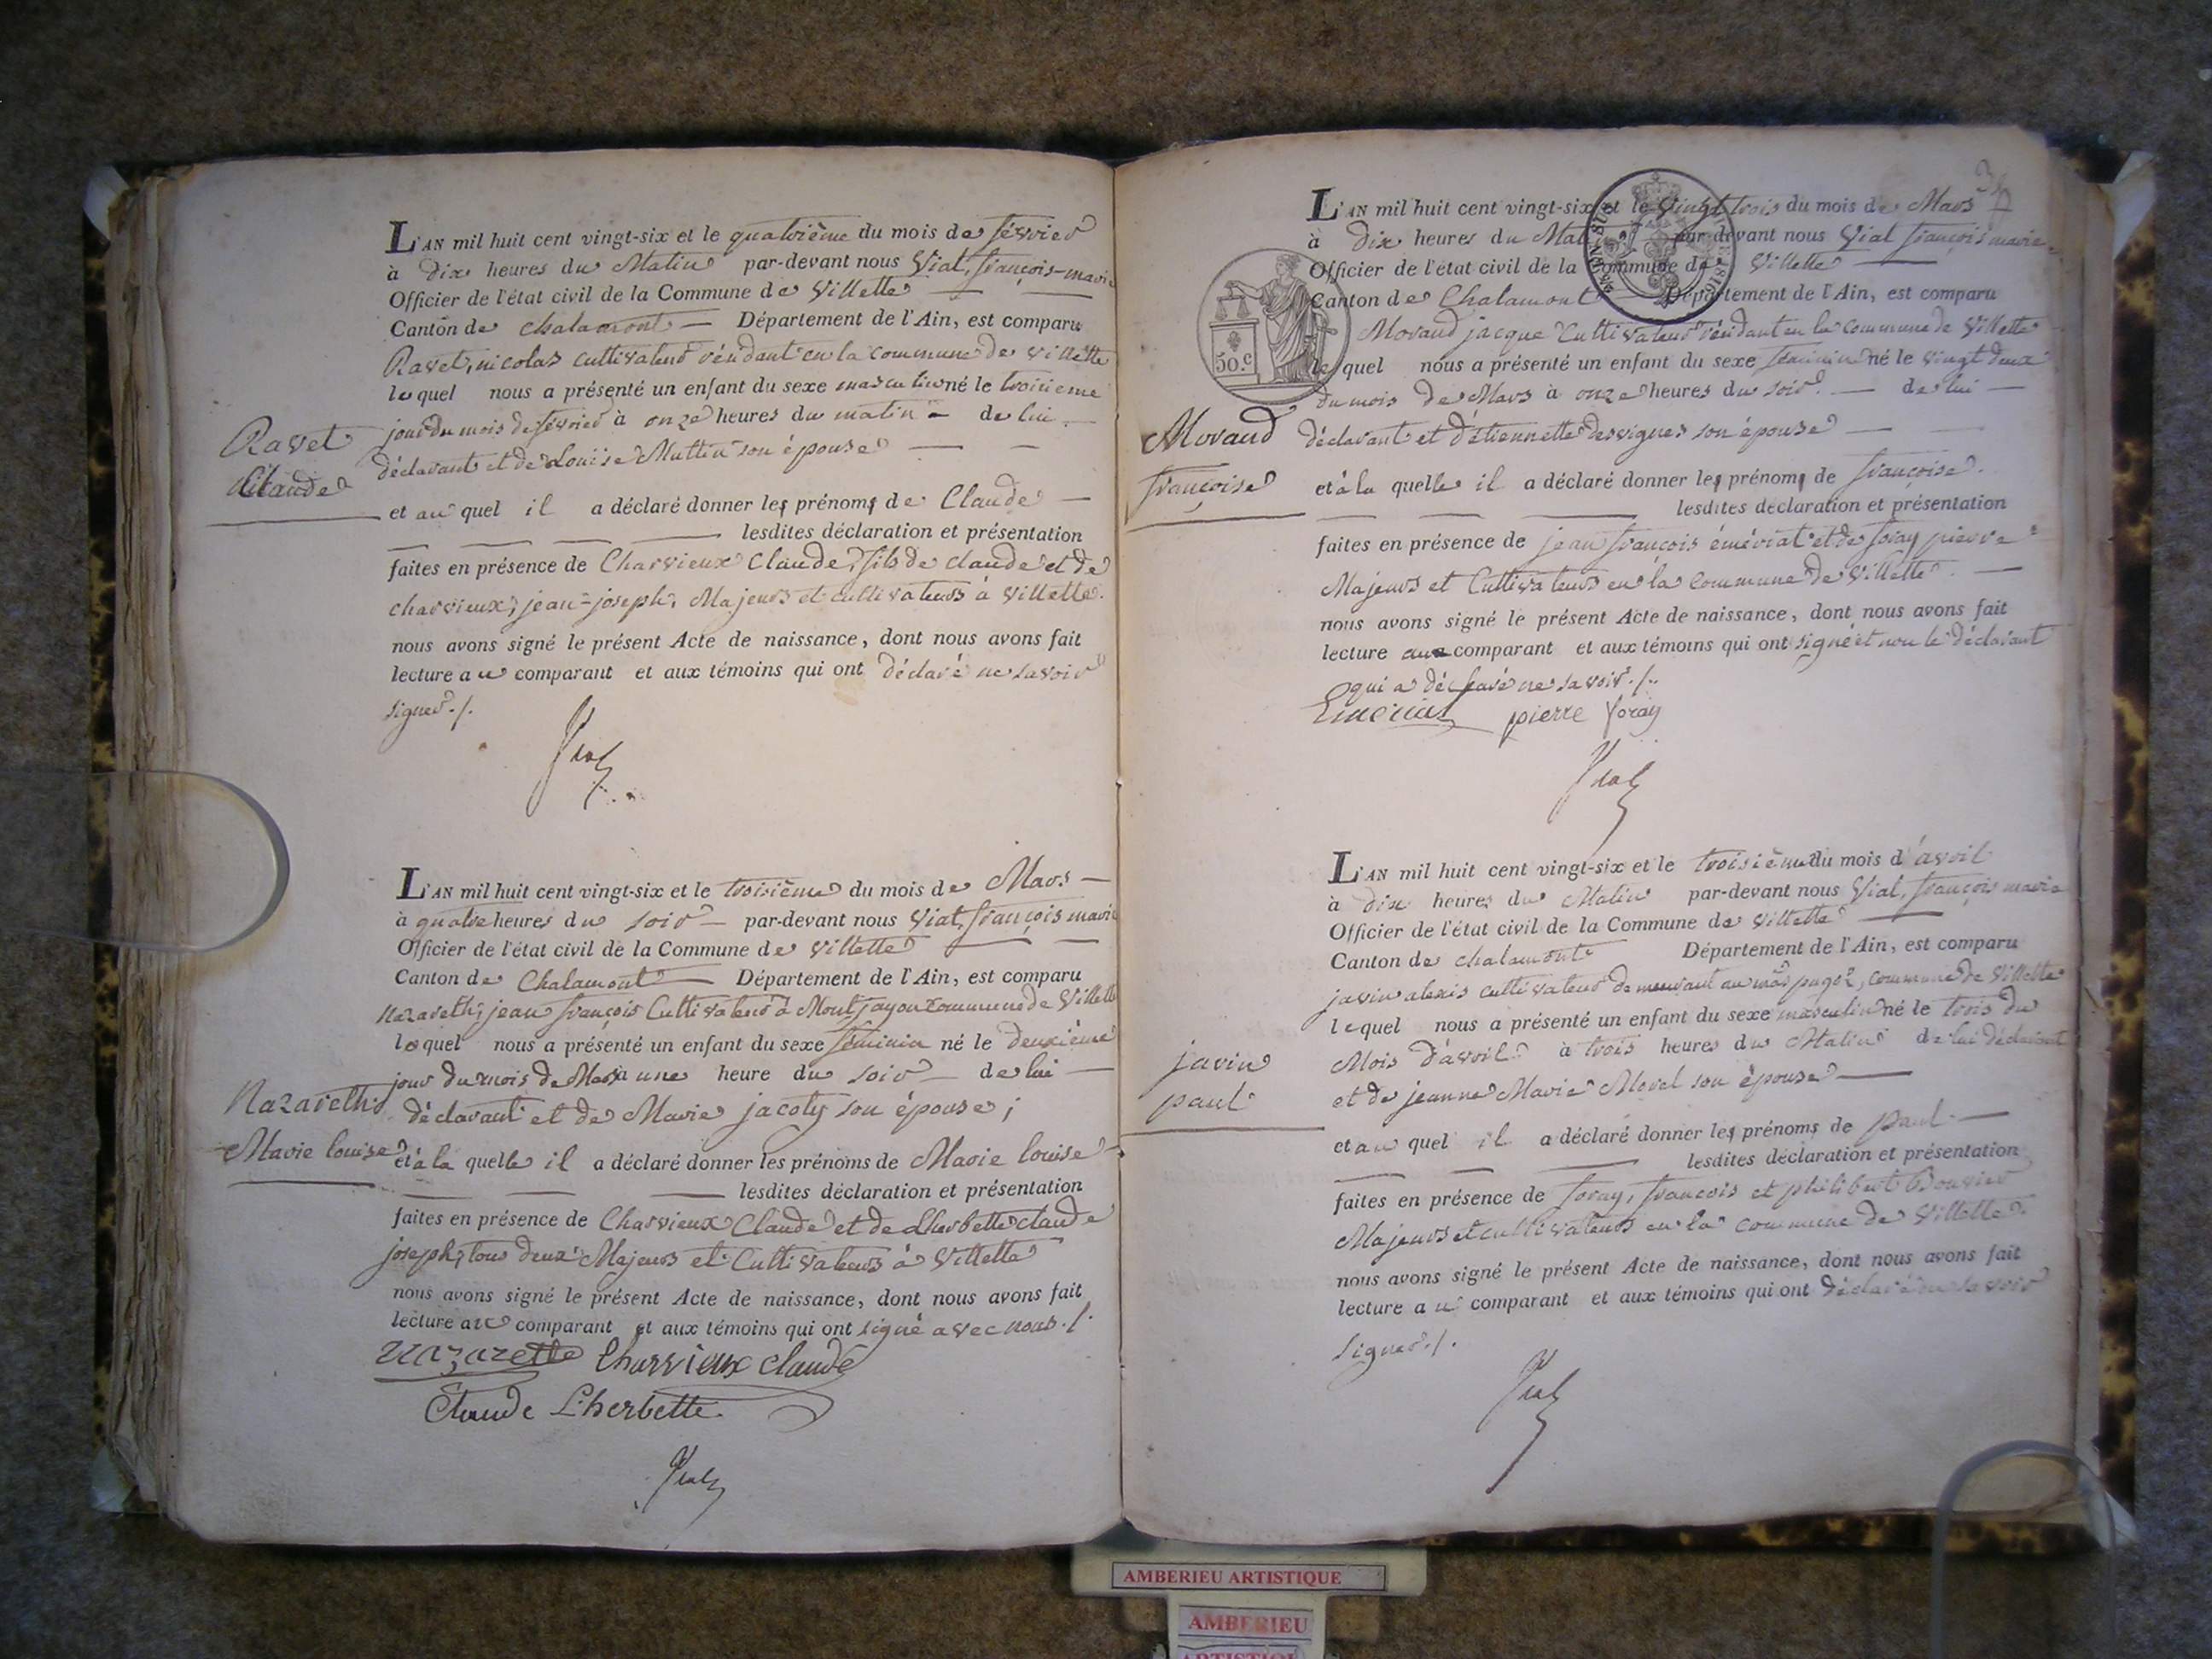 L'AN mil huit cent vingt-six et le quatrième du mois de février
à dix heures du Matin par-devant nous Vial, françois-marie
Officier de l'état civil de la Commune de Villette
Canton de chalamont Département de l'Ain, est comparu
Ravet, nicolas cultivateur résidant en la commune de Villette
lequel nous a présenté un enfant du sexe masculin né le troisieme
jour du mois de février à onze heures du matin de lui
Ravet
déclarant et de Louise Muttin son épouse
Claude
et au quel il a déclaré donner les prénoms de Claude
lesdites déclaration et présentation
faites en présence de Charvieux Claude, fils de claude et de
charvieux, jean-joseph, Majeurs et cultivateurs à Villette.
nous avons signé le présent Acte de naissance, dont nous avons fait
lecture au comparant et aux témoins qui ont déclaré ne savoir
signer ./.
Vial
L'AN mil huit cent vingt-six et le troisième du mois de Mars
à quatre heures du soir par-devant nous Vial, françois marie
Officier de l'état civil de la Commune de Villette
Canton de Chalamont Département de l'Ain, est comparu
Nazareth, jean françois Cultivateur à Montjayon commune de Villette
lequel nous a présenté un enfant du sexe féminin né le deuxième
jour du mois de Mars à une heure du soir de lui
Nazareth
déclarant et de Marie jacoty son épouse ;
Marie louise
et à la quelle il a déclaré donner les prénoms de Marie louise
lesdites déclaration et présentation
faites en présence de Charvieux Claude et de Lherbette claude
joseph, tous deux Majeurs et Cultivateurs à Villette
nous avons signé le présent Acte de naissance, dont nous avons fait
lecture au comparant et aux témoins qui ont signé avec nous ./.
Nazarette Charvieux claude
Claude Lherbette
Vial
L'AN mil huit cent vingt-six et le Vingt trois du mois de Mars
à dix heures du Matin par-devant nous Vial françois marie
Officier de l'état civil de la Commune de Villette
Canton de Chalamont Département de l'Ain, est comparu
Morand jacque Cultivateur résidant en la commune de Villette
50.c
lequel nous a présenté un enfant du sexe féminin né le vingt deux
du mois de Mars à onze heures du soir de lui
Morand
déclarant et d'étiennette desvignes son épouse
françoise
et à la quelle il a déclaré donner les prénoms de françoise.
lesdites déclaration et présentation
faites en présence de jean françois émériat et de foray pierre
Majeurs et Cultivateurs en la commune de Villette
nous avons signé le présent Acte de naissance, dont nous avons fait
lecture au comparant et aux témoins qui ont signé et non le déclarant
qui a déclaré ne savoir ./.
Emeriat pierre foray
Vial
L'AN mil huit cent vingt-six et le troisième du mois d'avril
à dix heures du Matin par-devant nous Vial, françois marie
Officier de l'état civil de la Commune de Villette
Canton de chalamont Département de l'Ain, est comparu
javin alexis cultivateur demeurant au mas pugoz, commune de Villette
lequel nous a présenté un enfant du sexe masculin né le trois du
Mois d'avril à trois heures du Matin de lui déclarant
javin
et de jeanne Marie Morel son épouse
paul
et au quel il a déclaré donner les prénoms de paul
lesdites déclaration et présentation
faites en présence de foray, françois et philibert Bouvier
Majeurs et cultivateurs en la commune de Villette.
nous avons signé le présent Acte de naissance, dont nous avons fait
lecture au comparant et aux témoins qui ont déclaré ne savoir
signer ./.
Vial
AMBERIEU ARTISTIQUE
AMBERIEU
ARTISTIQUE